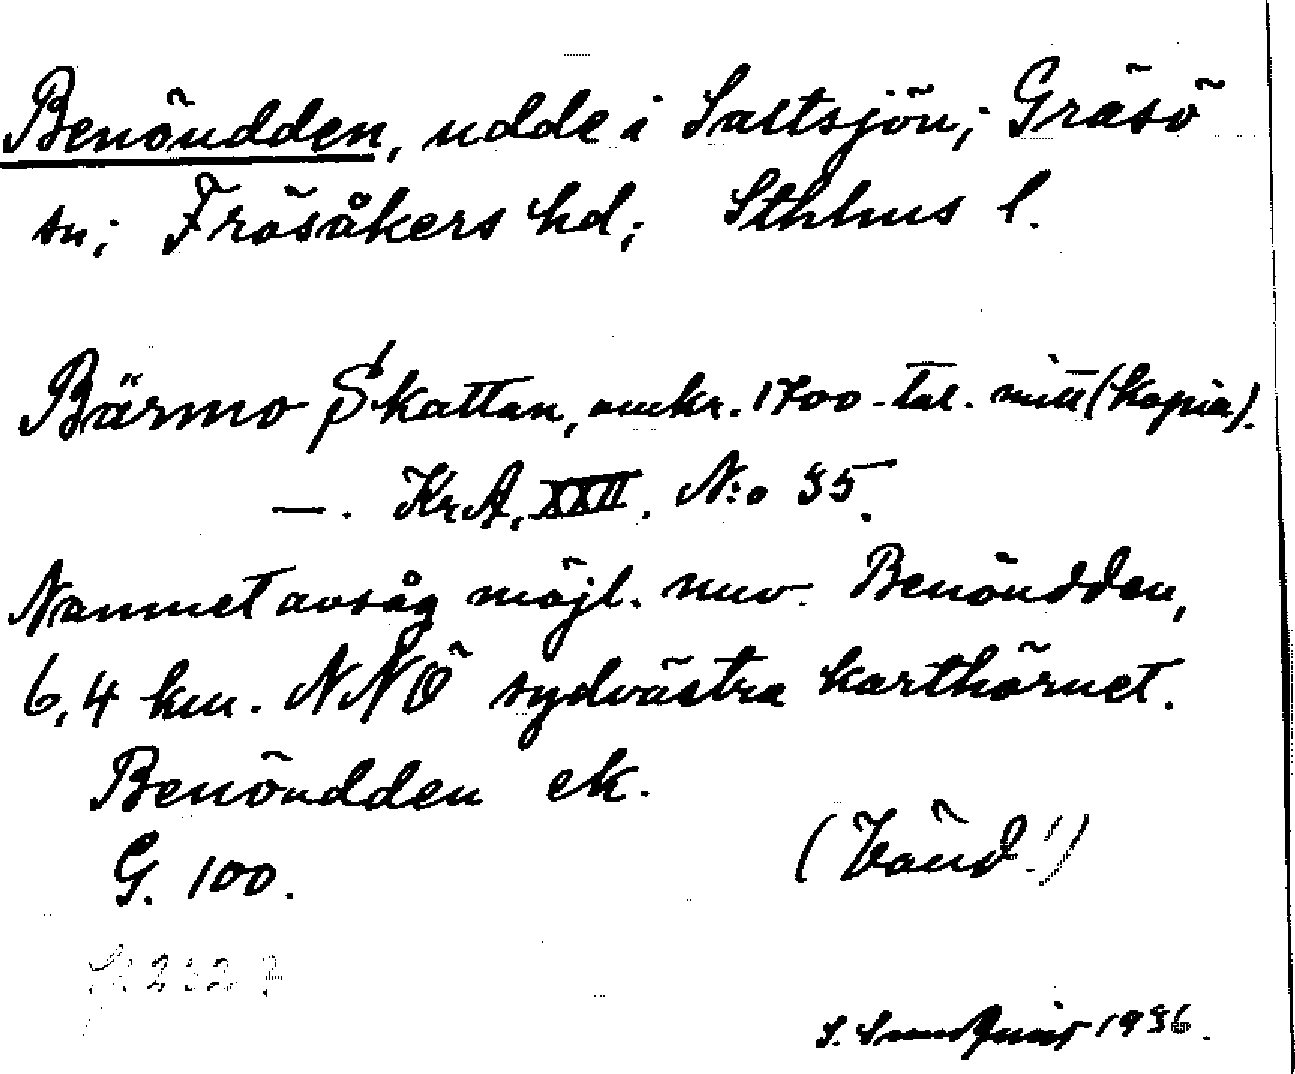 Benöudden, udde i Saltsjön; Gräsö
sn; Frösåkers hd; Sthlms l.
Bärmo Skattan, omkr. 1700-tal. mitt (kopia).
—. KrA, XXII. N:o 35.
Namnet avsåg möjl. nuv. Benöudden,
6,4 km. NNÖ sydvästra karthörnet.
Benöudden ek.
G. 100.
(Vänd!)
S. Sundquist 1936.